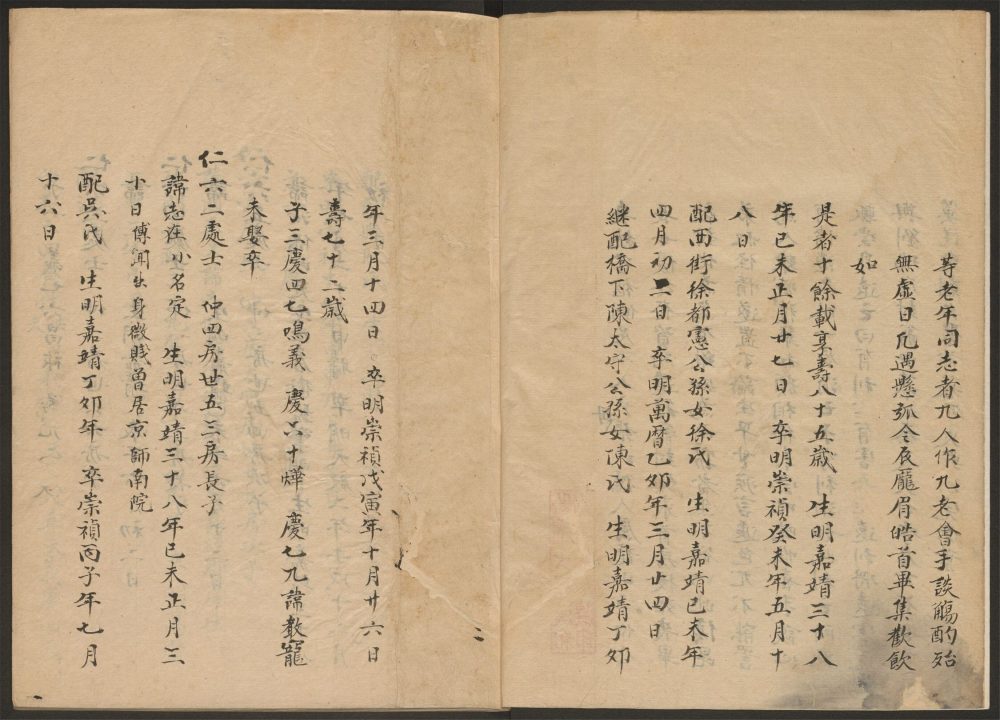 等老年同志者九人作九老會手談觴酌殆
無虛日凡遇懸弧令辰龎眉皓首畢集歡飲
如
是者十餘載享壽八十五歲　生明嘉靖三十八
年已未正月廿七日卒明崇禎癸未年五月十
八日
配西街徐都憲公孫女徐氏　生明嘉靖已未年
四月初二日　卒明萬曆乙卯年三月廿四日
繼配橋下陳太守公孫女陳氏　生明嘉靖丁卯
年三月十四日　卒明崇禎戊寅年十月廿六日
壽七十二歲
子三慶四七鳴義　慶六十燁　慶七九諱教寵
未娶卒
仁六二處士　仲四房世五三房長子
諱志在小名定　生明嘉靖三十八年已未正月三
十日傅聞出身微賤曽居京師南院
配吳氏　生明嘉靖丁卯年　卒崇禎丙子年七月
十六日